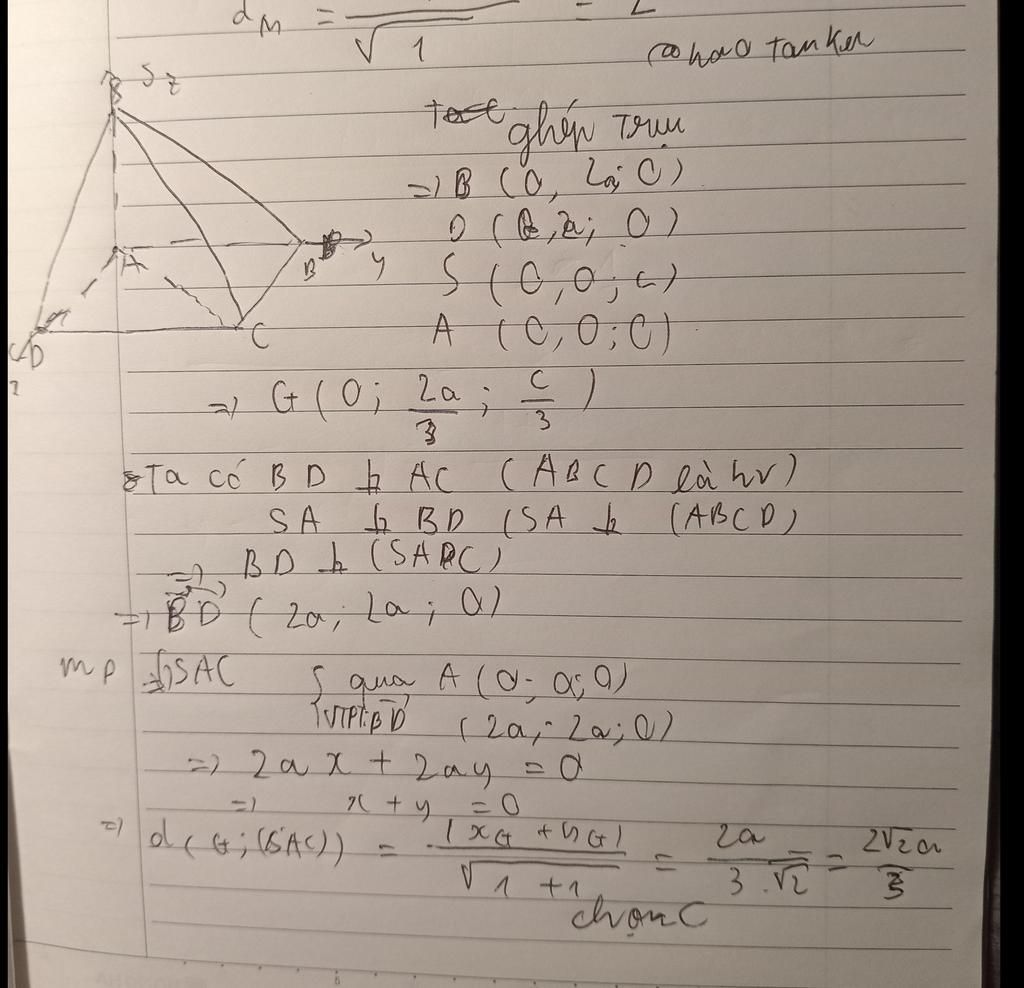 d_M = ‾/√1 = 2
hao tanker
S z
ghép trục
A B y
=> B (0, 2a; 0)
D (2a; 0)
S (0, 0; c)
D C
A (0, 0; 0)
=> G (0; 2a/3; c/3)
Ta có BD ⊥ AC (ABCD là hv)
SA ⊥ BD (SA ⊥ (ABCD)
=> BD ⊥ (SAC)
=> BD (2a; 2a; 0)
mp SAC { qua A (0; 0; 0)
VTPT: BD (2a; -2a; 0)
=> 2ax + 2ay = 0
=> x + y = 0
=> d(G; (SAC)) = |x_G + y_G| / √1+1 = 2a / 3.√2 = 2√2a / 3
chọn C